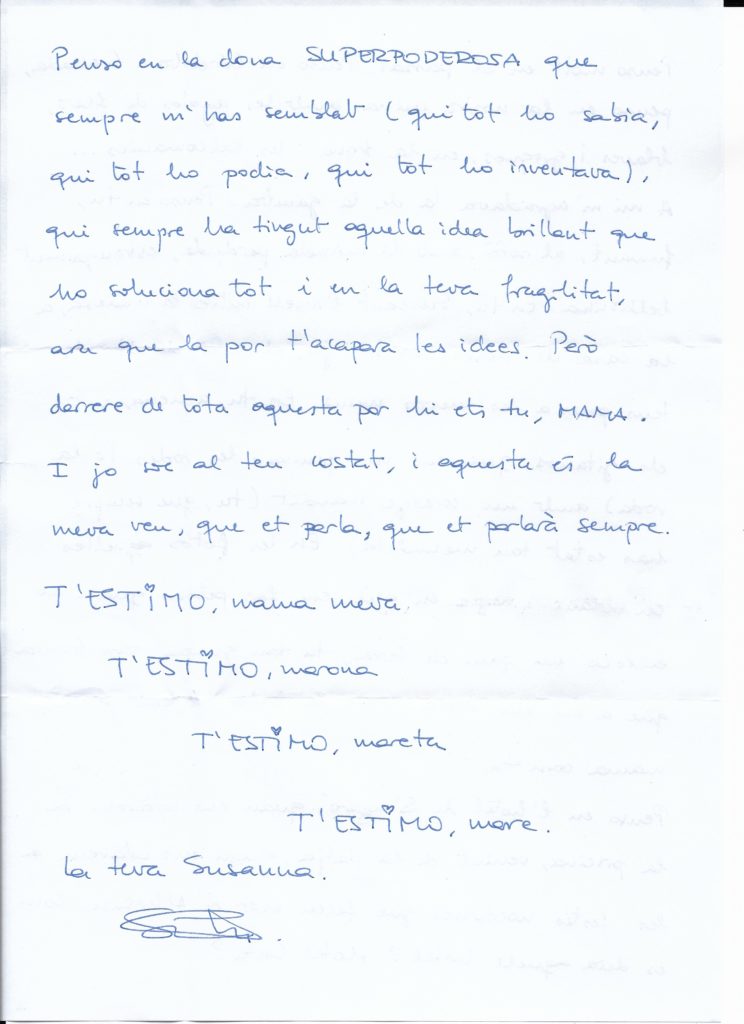 Penso en la dona SUPERPODEROSA que
sempre m'has semblat (qui tot ho sabia,
qui tot ho podia, qui tot ho inventava),
qui sempre ha tingut aquella idea brillant que
ho soluciona tot i en la teva fragilitat,
ara que la por t'acapara les idees. Però
darrere de tota aquesta por hi ets tu, MAMA.
I jo sóc al teu costat, i aquesta és la
meva veu, que et parla, que et parlarà sempre.
T'ESTIMO, mama meva.
T'ESTIMO, marona
T'ESTIMO, mareta
T'ESTIMO, mare.
La teva Susanna.